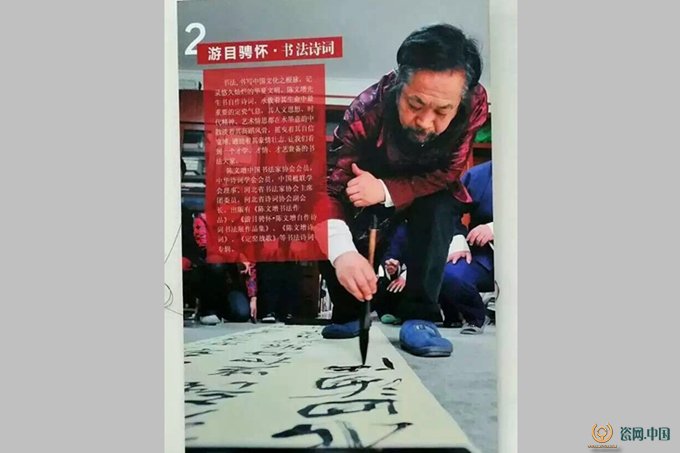 2
游目骋怀·书法诗词
书法,书写中国文化之根脉,记
录悠久灿烂的华夏文明。陈文增先
生书自作诗词,承载着其生命中最
重要的定瓷气息。其人文思想、时
代精神、艺术情思都在水墨意韵中
散淡着其风骨,摇曳着其自信
着其豪情壮志,让我们看
到一个才学、才情、才艺兼备的书
法大家。
陈文增中国书法家协会会员,
中华诗词学会会员,中国楹联学
会理事,河北省书法家协会主席
团委员,河北省诗词协会副会
长。出版有《陈文增书法作
品》、《游目骋怀•陈文增自作诗
词书法展作品集》、《陈文增诗
词》、《定窑战歌》等书法诗词
专辑。
瓷网.中国